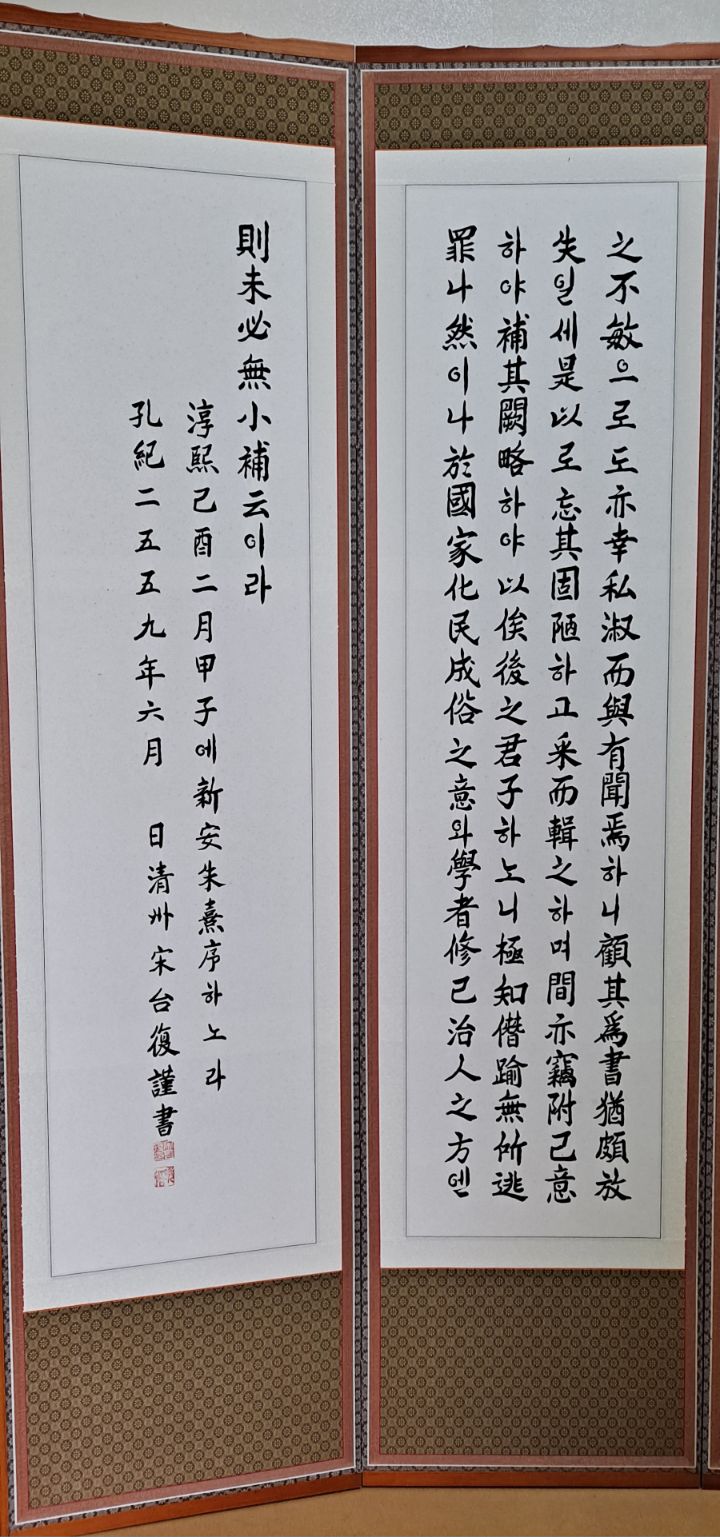 之不敏으로도亦幸私淑而與有聞焉하니顧其爲書猶頗放
失일세是以로忘其固陋하고采而輯之하며間亦竊附己意
하야補其闕略하야以俟後之君子하노니極知僭踰無所逃
罪나然이나於國家化民成俗之意와學者修己治人之方엔
則未必無小補云이라
淳熙己酉二月甲子에新安朱熹序하노라
孔紀二五五九年六月 日清州宋台復謹書